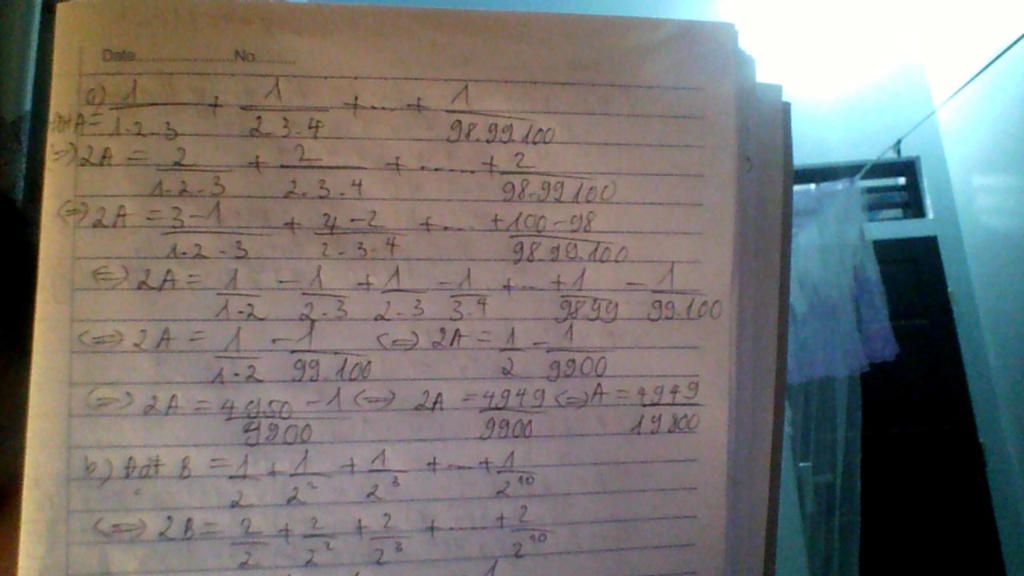 Date..................No.........
a) Đặt A = 1/1.2.3 + 1/2.3.4 + ... + 1/98.99.100
=> 2A = 2/1.2.3 + 2/2.3.4 + ..... + 2/98.99.100
(=) 2A = 3-1/1.2.3 + 4-2/2.3.4 + .... + 100-98/98.99.100
(=) 2A = 1/1.2 - 1/2.3 + 1/2.3 - 1/3.4 + ... + 1/9899 - 1/99.100
(=) 2A = 1/1.2 - 1/99.100 (=) 2A = 1/2 - 1/9900
(=) 2A = 4950-1/9900 (=) 2A = 4949/9900 (=) A = 4949/19800
b) Đặt B = 1/2 + 1/2² + 1/2³ + ... + 1/2¹⁰
(=) 2B = 2/2 + 2/2² + 2/2³ + ..... + 2/2¹⁰